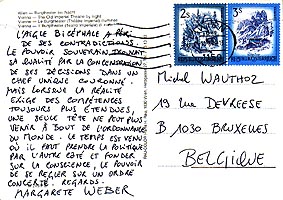 Wien – Burgtheater bei Nacht
Vienna – The Old Imperial Theatre by night
L'AIGLE BICÉPHALE A PÉRI
DE SES CONTRADICTIONS.
LE POUVOIR SOUVERAIN TROUVAIT
SA DUALITÉ PAR LA CONCENTRATION
DE SES DÉCISIONS DANS UN
CHEF UNIQUE COURONNÉ.
MAIS LORSQUE LA RÉALITÉ
EXIGE DES COMPÉTENCES
TOUJOURS PLUS ÉTENDUES,
UNE SEULE TÊTE NE PEUT PLUS
VENIR À BOUT DE L'ORDONNANCE
DU MONDE. LE TEMPS EST VENU
OÙ IL FAUT PRENDRE LA POLITIQUE
PAR L'AUTRE CÔTÉ ET FONDER
SUR LA CONSCIENCE, LE POUVOIR
DE SE RÉGLER SUR UN ORDRE
CONCERTÉ. REGARDS.
MARGARETE WEBER
2s
3s
REPUBLIK ÖSTERREICH
REPUBLIK ÖSTERREICH
Michel WAUTHOZ
19 RUE DEVREESE
B 1030 BRUXELLES
BELGIQUE